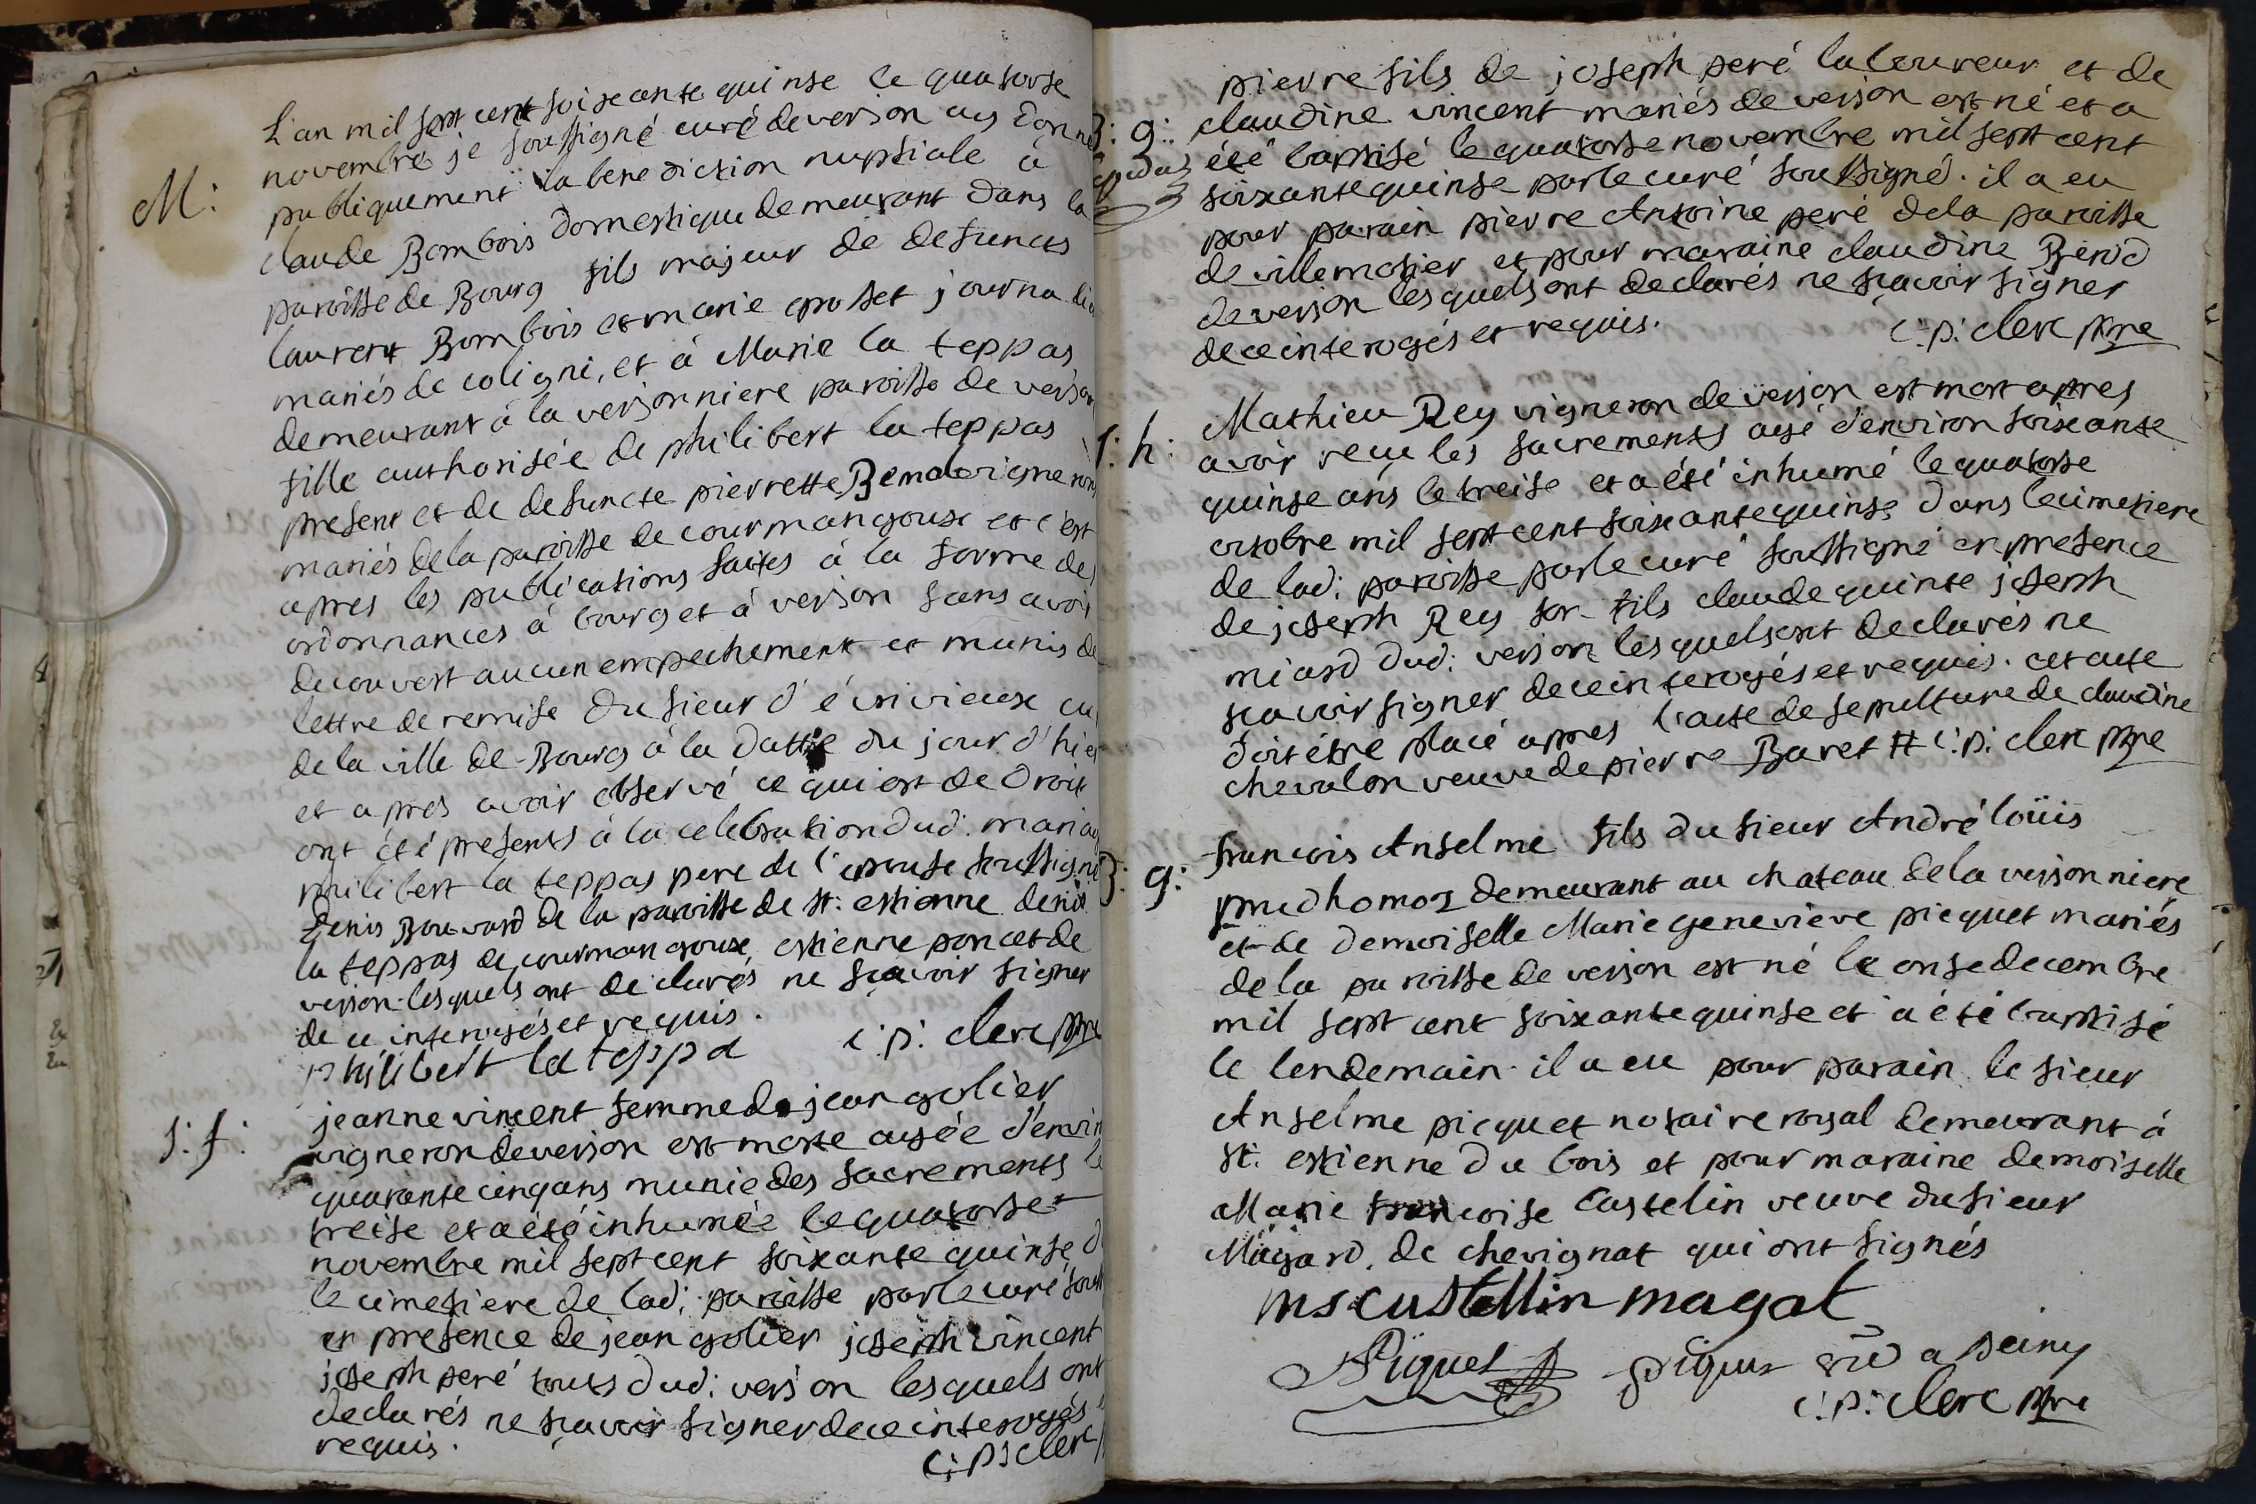 L'an mil sept cent soixante quinse le quatorse
novembre je soussigné curé de verson ay donné
M:
publiquement la benediction nuptiale à
claude Bombois domestique demeurant dans la
paroisse de Bourg fils majeur de defuncts
laurent Bombois et marie grosset journa
mariés de coligni, et à Marie la teppas
demeurant à la versonniere paroisse de verson
fille authorisée de philibert la teppas
present et de defuncte pierrette vigneron
mariés de la paroisse de courmangoux et c'est
apres les publications faites à la forme des
ordonnances à bourg et à verson sans avoir
decouvert aucun empechement et munis de
lettre de remise du sieur d'écrivieux cu
de la ville de Bourg à la datte du jour d'hier
et apres avoir observé ce qui est de droit
ont été presents à la celebration dud: mariag
philibert la teppas pere de l'epouse soussigné
denis Bouvard de la paroisse de st: estienne denis
la teppas de courmangoux, estienne poncet de
verson lesquels ont declarés ne sçavoir signer
de ce interogés et requis.
philibert la teppa c: p: clerc pbre
s: f:
jeanne vincent femme de jean golier
vigneron de verson est morte agée d'envir
quarante cinq ans munie des sacrements le
treise et a été inhumée le quatorse
novembre mil sept cent soixante quinse d
le cimetiere de lad: paroisse par le curé souss
en presence de jean golier joseph vincent
joseph peré touts dud: verson lesquels ont
declarés ne sçavoir signer de ce interogés e
requis.
c: p: clerc
pierre fils de joseph peré laboureur et de
B: g:
claudine vincent mariés de verson est né et a
été baptisé le quatorse novembre mil sept cent
soixante quinse par le curé soussigné. il a eu
pour parain pierre Antoine peré de la paroisse
de villemotier et pour maraine claudine Berod
de verson lesquels ont declarés ne sçavoir signer
de ce interogés et requis.
c: p: clerc pbre
s: h:
Mathieu Rey vigneron de verson est mort apres
avoir reçu les sacrements agé d'environ soixante
quinse ans le treise et a été inhumé le quatorse
octobre mil sept cent soixante quinse dans le cimetiere
de lad: paroisse par le curé soussigné en presence
de joseph Rey son fils claude quinte joseph
miard dud: verson lesquels ont declarés ne
sçavoir signer de ce interogés et requis. cet acte
doit être placé apres l'acte de sepulture de claudine
chevalon veuve de pierre Baret # c: p: clerc pbre
B: g:
francois Anselme fils du sieur André loüis
prudhomos demeurant au chateau de la versonniere
et de demoiselle Marie genevieve picquet mariés
de la paroisse de verson est né le onse decembre
mil sept cent soixante quinse et a été baptisé
le lendemain. il a eu pour parain le sieur
Anselme picquet notaire royal demeurant à
st: estienne du bois et pour maraine demoiselle
Marie francoise Castelin veuve du sieur
Magard, de chevignat qui ont signés
ms castellin magat
Piquet piquet a
c: p: clerc pbre